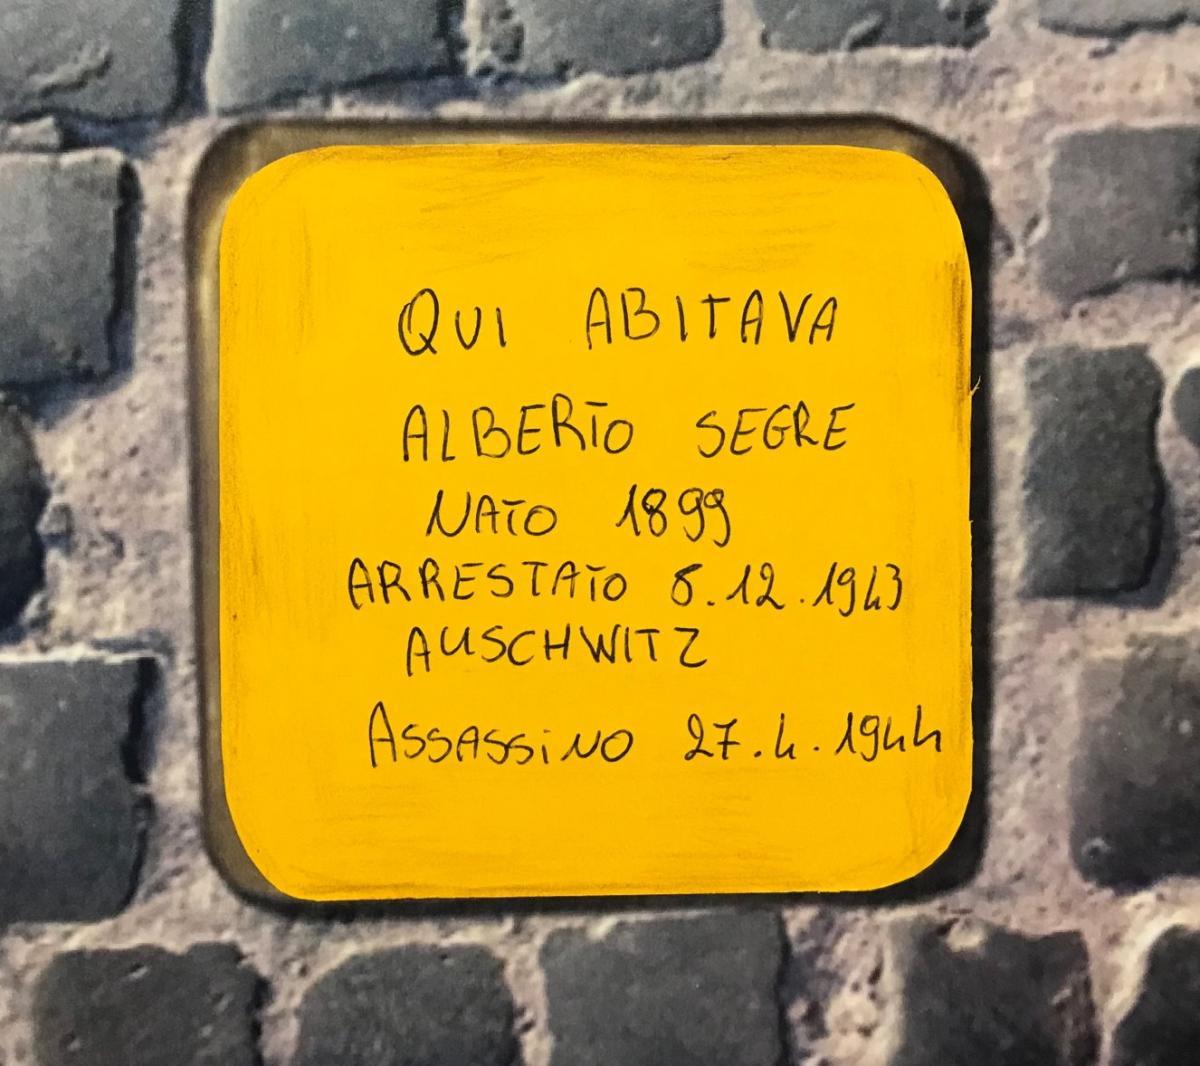 QUI ABITAVA
ALBERTO SEGRE
NATO 1899
ARRESTATO 8.12.1943
AUSCHWITZ
ASSASSINO 27.4.1944